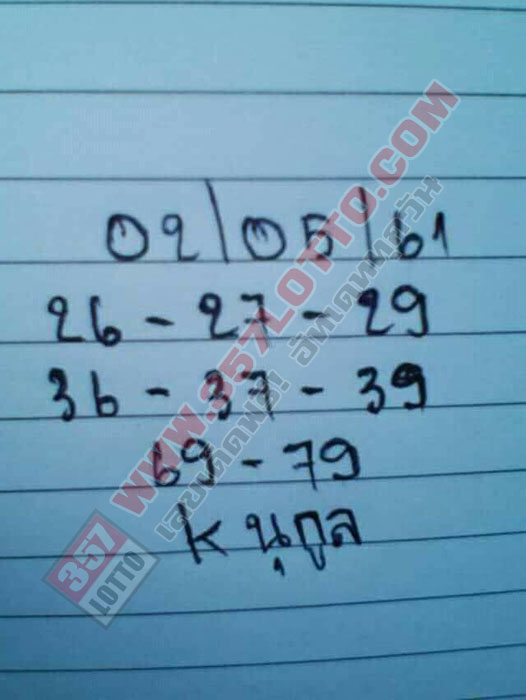 02/05/61
26 - 27 - 29
36 - 37 - 39
69 - 79
K นุกูล
WWW.357LOTTO.COM
เลขเด็ดฟรี! อัพเดทหวยทุกวัน
357
LOTTO